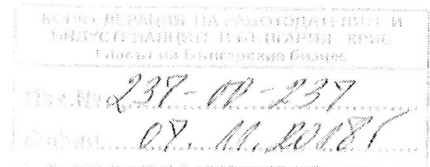 КОНФЕДЕРАЦИЯ НА РАБОТОДАТЕЛИТЕ И
ИНДУСТРИАЛЦИТЕ В БЪЛГАРИЯ - КРИБ
Гласът на българския бизнес
Изх.№ 237-00-237
09.11.2018г